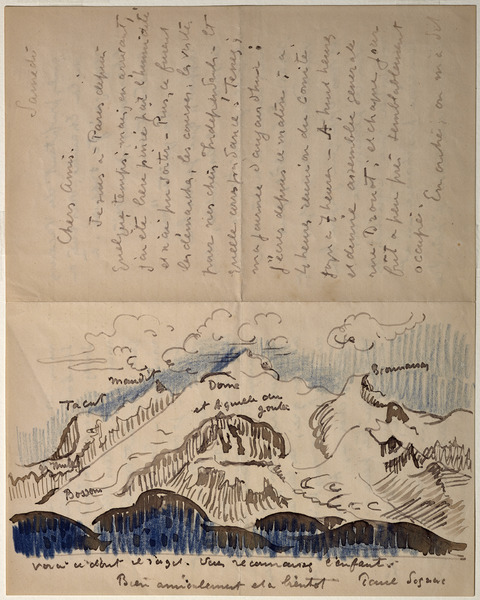 Samedi
Chers Amis.
Je suis à Paris depuis
quelque temps, mais, en arrivant,
j'ai été bien pincé par l'humidité
et n'ai pu sortir - Puis, ce furent
les démarches, les courses, les visites
pour nos chers Indépendants - Et
quelle correspondance! Tenez,
ma journée d'aujourd'hui:
J'écris depuis ce matin, à
4 heures réunion du Comité
jusqu'à 7 heures - A huit heures
et demie assemblée générale
rue Drouot; et chaque jour
fut à peu près semblablement
occupé.
En outre, on me dit
maudit
Tacul
Dome
et Aiguille du
gouter
Bionnassay
Bossons
Voici ce dont il s'agit. Vous reconnaissez l'enfant.
Bien amicalement et à bientôt Paul Signac